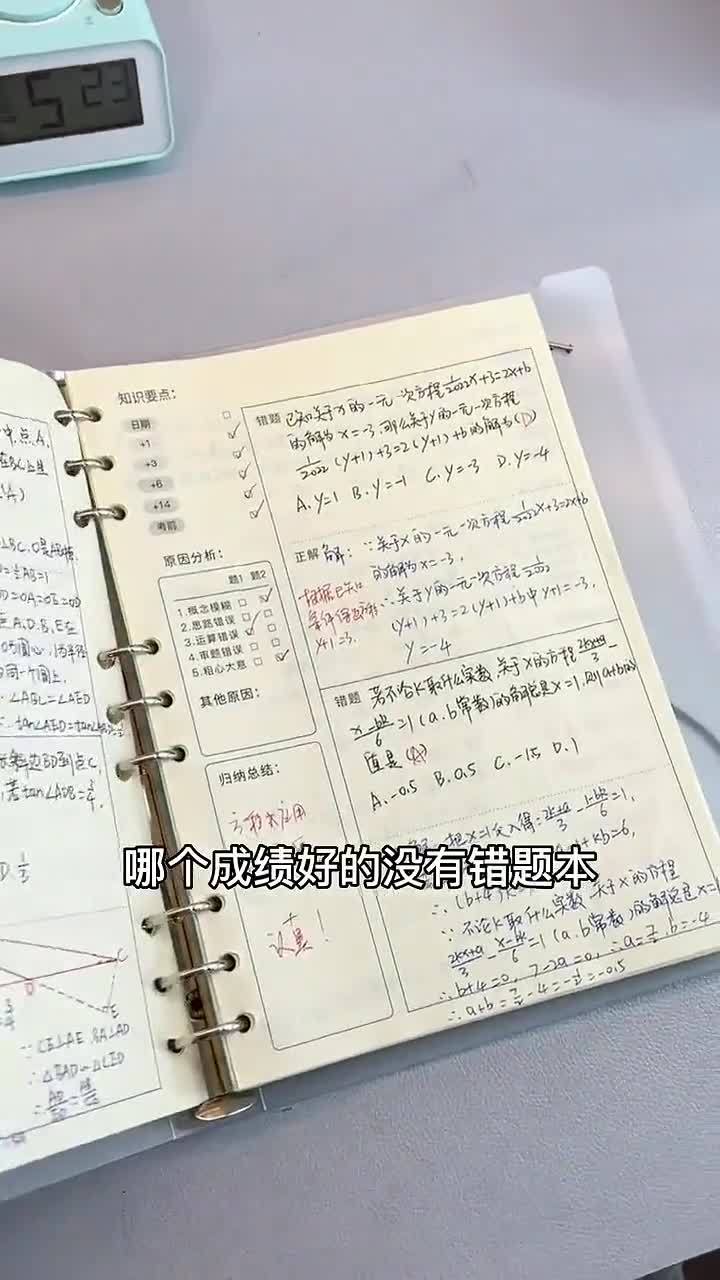 5 23
知识要点：
日期
+1
+3
+6
+14
考前
原因分析：
题1 题2
1.概念模糊
2.思路错误
3.运算错误
4.审题错误
5.粗心大意
其他原因：
归纳总结：
认真！
错题 已知关于x的一元一次方程1/2022x+3=2x+b
的解为x=-3,那么关于y的一元一次方程
1/2022(y+1)+3=2(y+1)+b的解为(D)
A.y=1 B.y=-1 C.y=-3 D.y=-4
正解 解：∵关于x的一元一次方程1/2022x+3=2x+b
的解为x=-3,
∴关于y的一元一次方程1/2022
(y+1)+3=2(y+1)+b中y+1=-3,
y=-4
根据已知
条件得
y+1=3.
错题 若不论k取什么实数,关于x的方程2kx+a/3-
x-bk/6=1(a.b常数)的解总是x=1,则a+b的
值是(A)
A.-0.5 B.0.5 C.-1.5 D.1
把x=1代入得:2k+a/3-1-bk/6=1,
∴(b+4)k
∴不论k取什么实数,关于x的方程
2kx+a/3-x-bk/6=1(a.b常数)的解总是x=1
∴b+4=0,7-2a=0,∴a=7/2,b=-4
∴a+b=7/2-4=-1/2=-0.5
哪个成绩好的没有错题本
∠ABC=∠AED
若tan∠ADB=3/4,
C
D
E
∵CE⊥AE,BA⊥AD